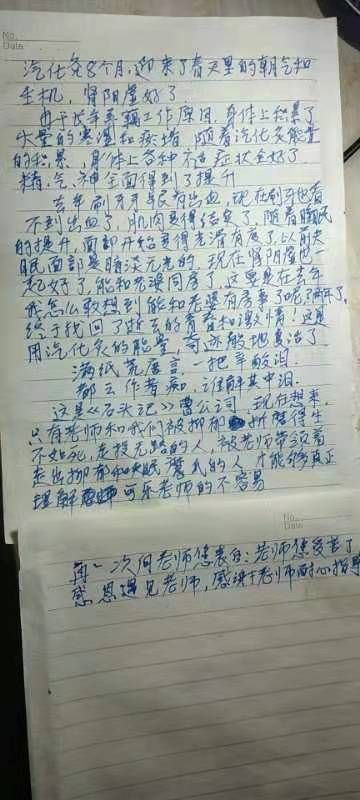 No.
Date
汽化灸8个月,迎来了春天里的朝气和
生机,肾阳虚好了
由于长年井工作原因,身体上积累了
大量的寒湿和瘀堵,随着汽化灸能量
的积累,身体上各种不适症状全好了
精、气、神全面得到了提升
去年刷牙牙每天有出血,现在刷牙也看
不到出血了,肌肉变得结实了,随着睡眠
的提升,面部开始变得光滑有度了,以前失
眠面部是暗淡无光的,现在肾阳虚也一
起好了,能和老婆同房了,这要是在去年
我怎么敢想到能和老婆有房事了呢?两年了,
终于找回了过去的青春和激情!这是
用汽化灸的能量,奇迹般地复活了
满纸荒唐言,一把辛酸泪
都云作者痴,谁解其中泪.
这是《石头记》曹公词,现在想来,
只有老师和我们被抑郁折磨得生
不如死,走投无路的人,被老师带领着
走出抑郁和失眠模式的人,才能够真正
理解可乐老师的不容易
No.
Date
再一次向老师您表白:老师您受苦了
感恩遇见老师,感谢老师耐心指导